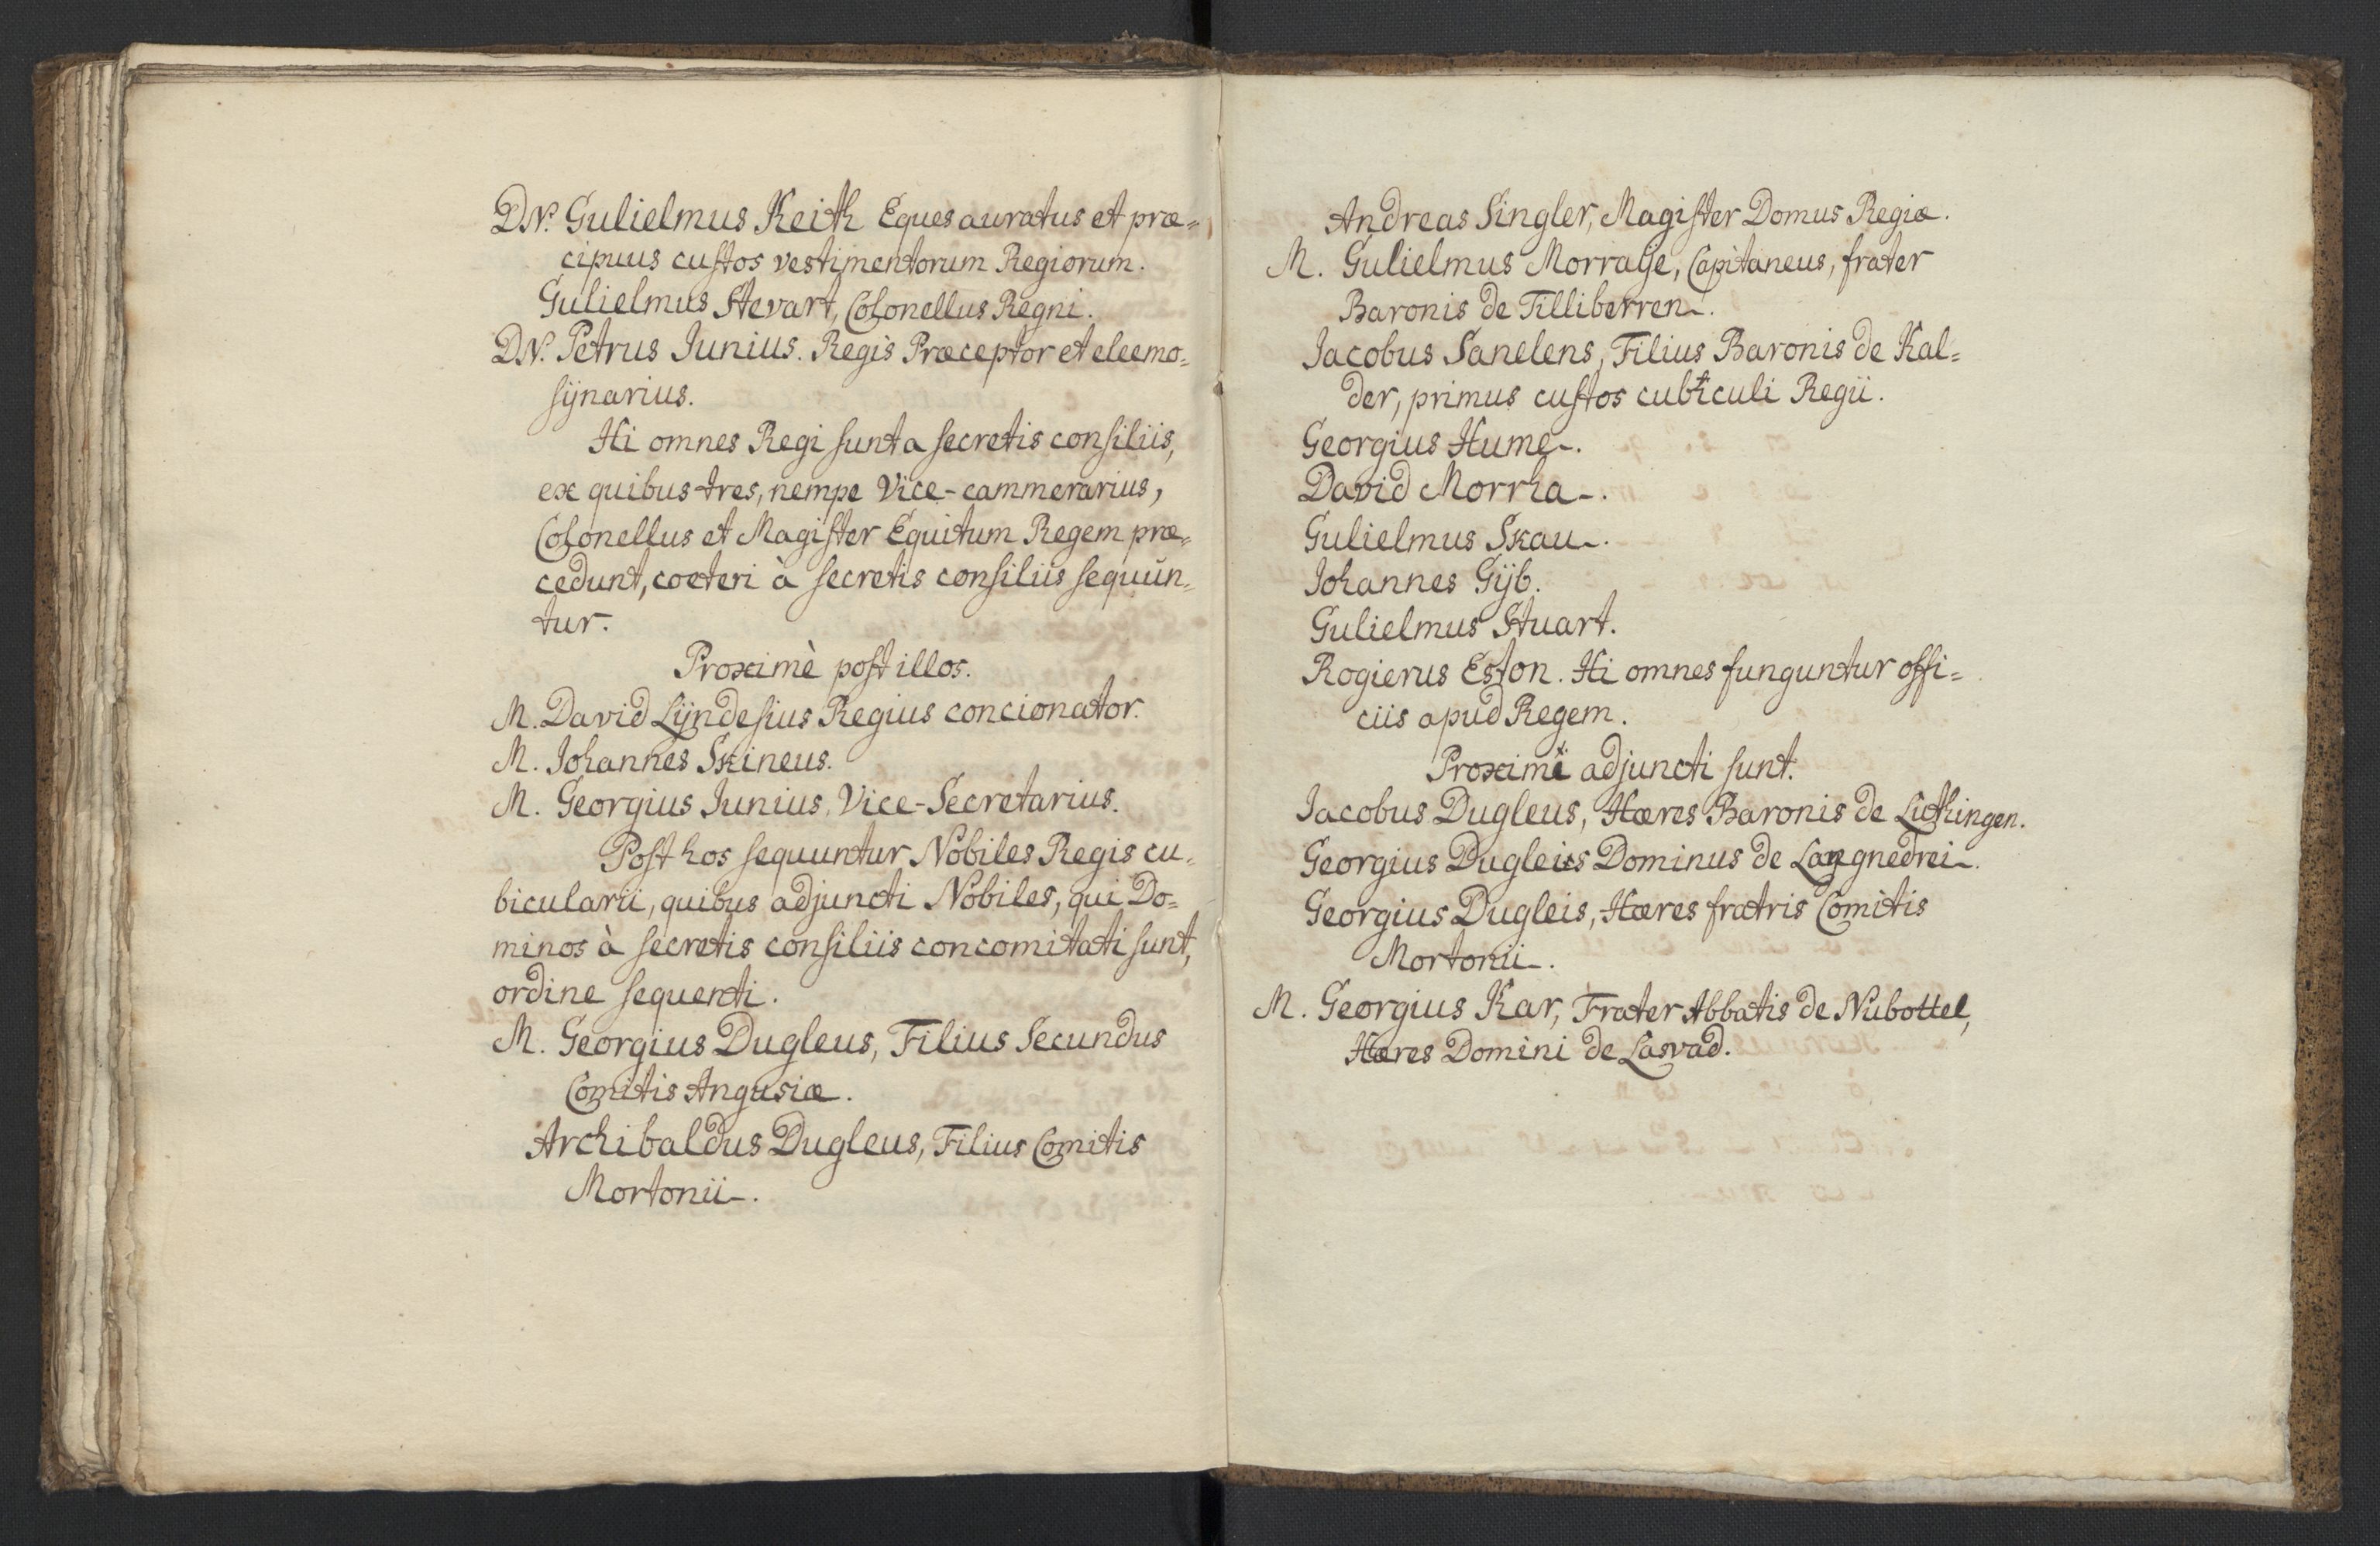 DN. Gulielmus Keith Eques auratus et præ=
cipuus custos vestimentorum Regiorum.
Gulielmus Stevart, Colonellus Regni.
DN. Petrus Iunius. Regis Præceptor et eleemo=
sÿnarius.
Hi omnes Regi sunt a secretis consiliis,
ex quibus tres, nempe Vice-cammerarius,
Colonellus et Magister Equitum Regem præ=
cedunt, cœteri à secretis consiliis sequun=
tur.
Proximè post illos.
M. David Lÿndesius Regius concionator.
M. Iohannes Skineus.
M. Georgius Iunius, Vice-Secretarius.
Post hos sequuntur Nobiles Regis cu=
bicularii, quibus adjuncti Nobiles, qui Do=
minos à secretis consiliis concomitati sunt,
ordine sequenti.
M. Georgius Dugleus, Filius Secundus
Comitis Angusiæ.
Archibaldus Dugleus, Filius Comitis
Mortonii.
Andreas Singler, Magister Domus Regiæ.
M. Gulielmus Morraÿe, Capitaneus, frater
Baronis de Tilliberren.
Iacobus Sanelens, Filius Baronis de Kal=
der, primus custos cubiculi Regii.
Georgius Hume.
David Morrha.
Gulielmus Skau.
Iohannes Gÿb.
Gulielmus Stuart.
Rogierus Eston. Hi omnes funguntur offi=
ciis apud Regem.
Proximi adjuncti sunt.
Iacobus Dugleus, Hæres Baronis de Lithingen.
Georgius Dugleus Dominus de Langnedrei.
Georgius Dugleis, Hæres fratris Comitis
Mortonii.
M. Georgius Kar, Frater Abbatis de Nubottel,
Hæres Domini de Lasvad.